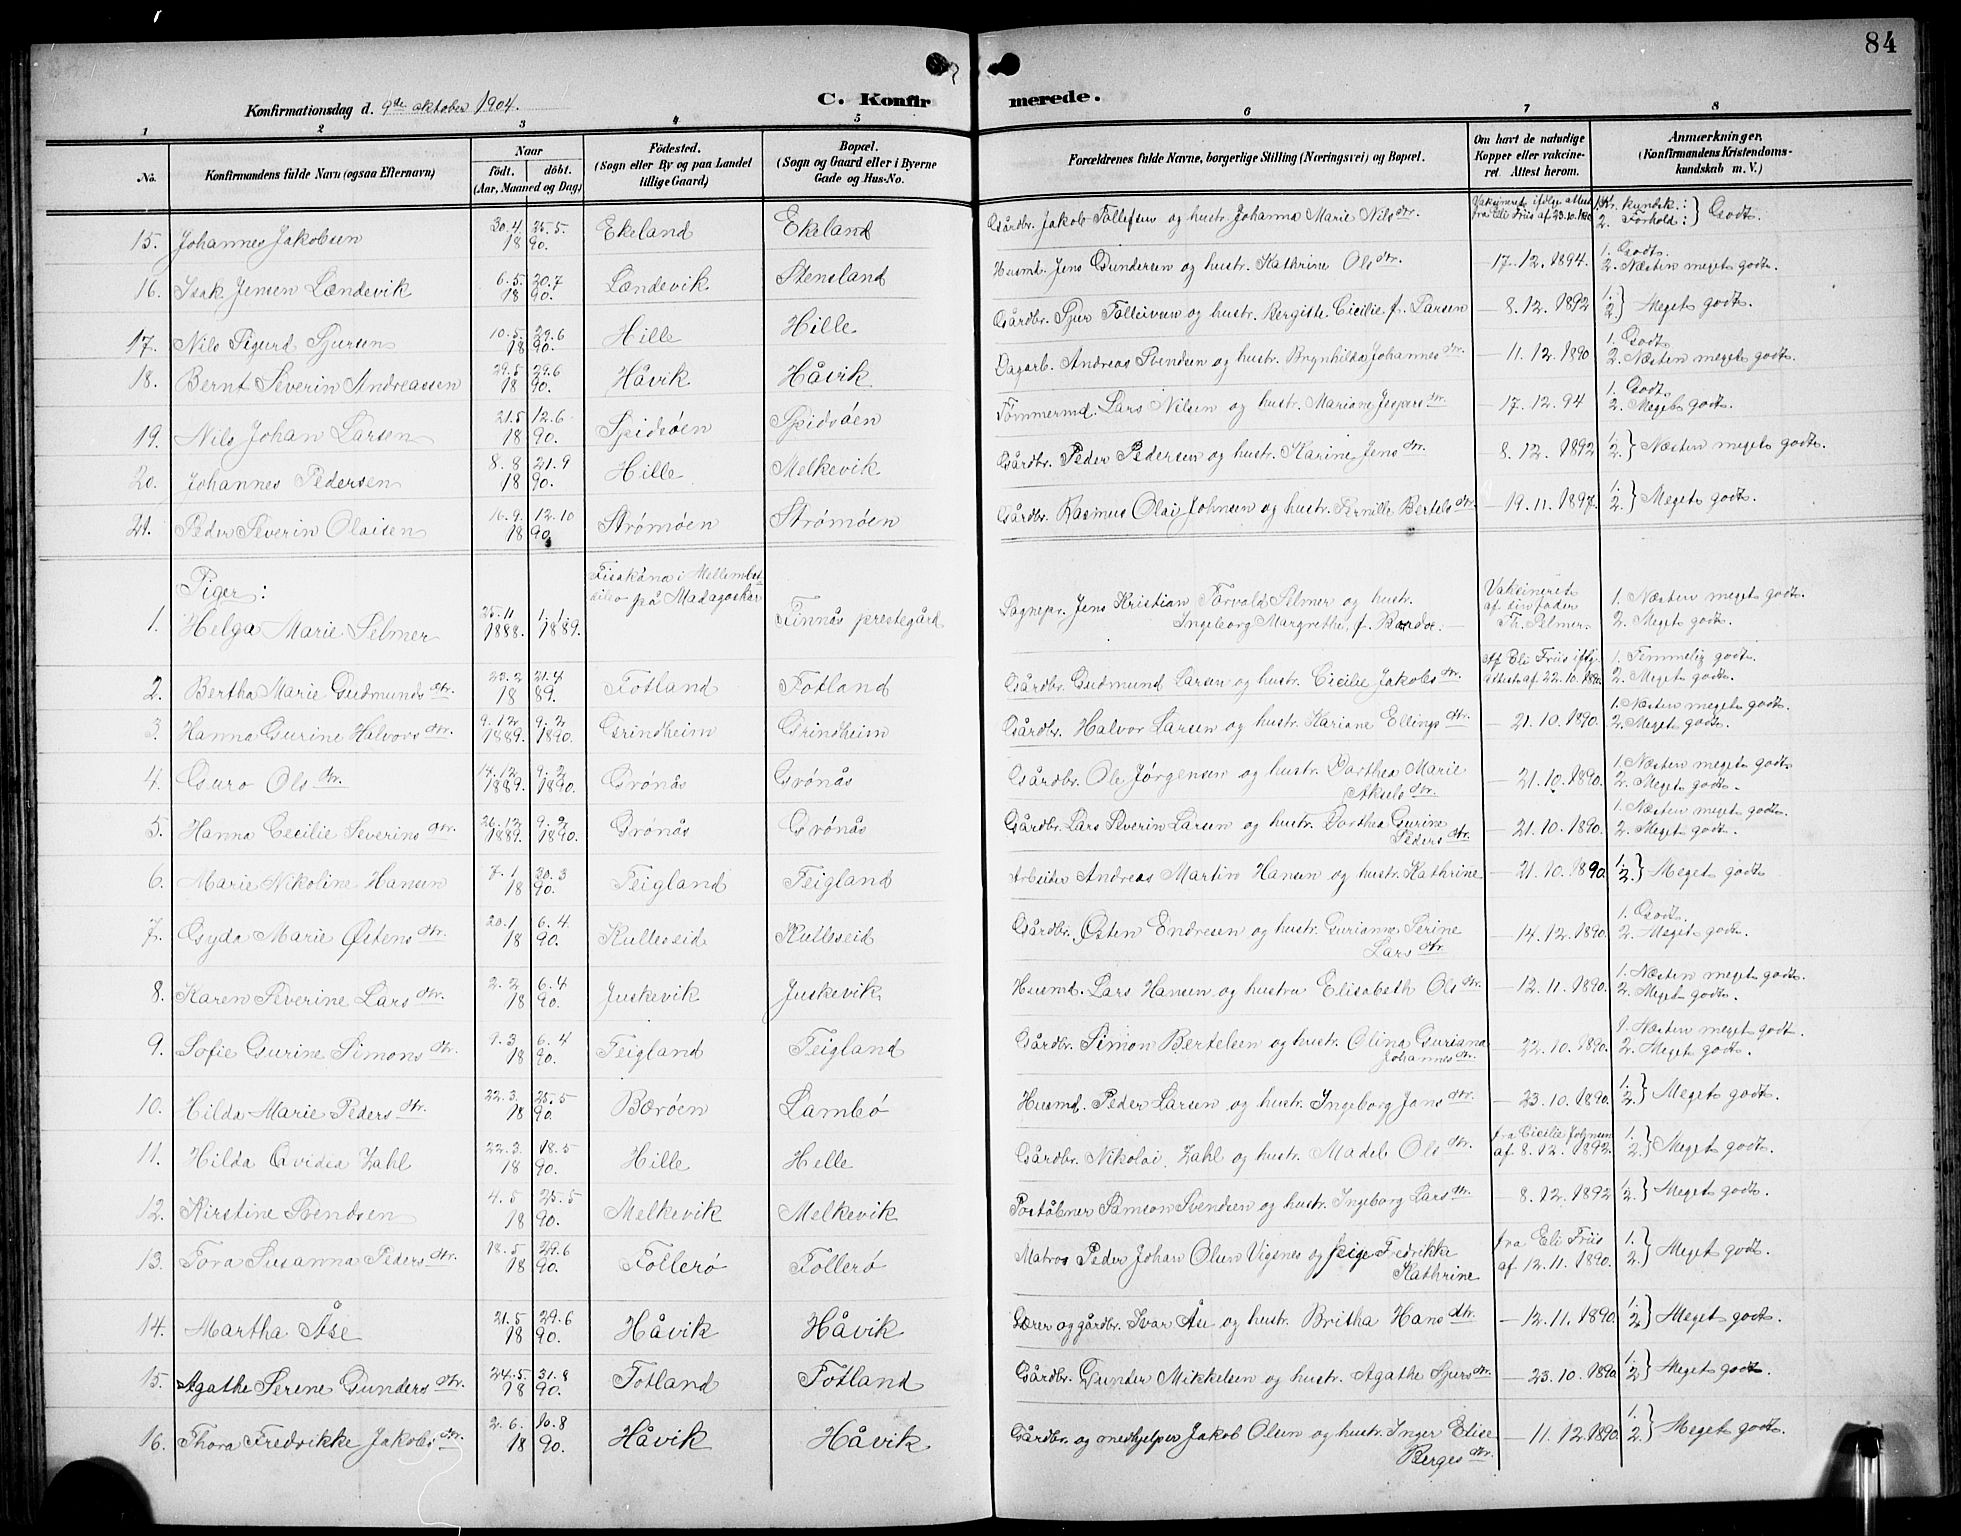 84
Konfirmationsdag d. 9de oktober 1904.
C. Konfirmerede.
1 2 3 4 5 6 7 8
No. Konfirmandens fulde Navn (ogsaa Efternavn) Naar født. døbt. (Aar, Maaned og Dag) Fødested. (Sogn eller By og paa Landet tillige Gaard) Bopæl. (Sogn og Gaard eller i Byerne Gade og Hus-No. Forældrenes fulde Navne, borgerlige Stilling (Næringsvei) og Bopæl. Om havt de naturlige Kopper eller vakcineret. Attest herom. Anmærkninger. (Konfirmandens Kristendomskundskab m. V.)
15. Johannes Jakobsen 30.4. 25.5. 1890. Ekeland Ekeland Gårdbr. Jakob Tollefsen og hustr. Johanna Marie Nilsdtr. Vaksineret ifølge attest fra Eli Friis af 23.10.1890 1. Kr. kundsk.: 2. Forhold: } Godt.
16. Isak Jensen Lændevik 6.5. 20.7 1890. Lændevik Stensland Husmd. Jens Gundersen og hustr. Kathrine Olsdtr. — 17.12.1894. 1. Godt. 2. Næsten meget godt.
17. Nils Sigurd Sjursen 10.5. 29.6 1890. Hille Hille Gårdbr. Sjur Tolleivsen og hustr. Bergitte Cicilie f. Larsen — 8.12.1892 1. 2. } Meget godt.
18. Bernt Severin Andreassen 29.5 29.6 1890. Håvik Håvik Dagarb. Andreas Svendsen og hustr. Brynhilda Johannesdtr. — 11.12.1890 1. Godt. 2. Næsten meget godt.
19. Nils Johan Larsen 21.5 12.6 1890. Spidsöen Spidsöen Tømmermd. Lars Nilsen og hustr. Mariane Jespersdtr. — 17.12.94 1. Godt. 2. Meget godt.
20. Johannes Pedersen 8.8 21.9 1890. Hille Melkevik Gårdbr. Peder Pedersen og hustr. Karine Jensdtr. — 8.12.1892 1. 2. } Næsten meget godt.
21. Peder Severin Olaisen 16.9. 12.10 1890. Strømøen Strømøen Gårdbr. Rasmus Olai Johnsen og hustr. Pernille Bertelsdtr. — 19.11.1897. 1. 2. } Meget godt.
Piger:
1. Helga Marie Selmer 25.11 1888. 1.1. 1889. i Mellem på Madagaskar Finnås prestegård Sognepr. Jens Kristian Torvald Selmer og hustr. Ingeborg Margrethe, f. Vaksineret af sin fader Th. Selmer. 1. Næsten meget godt. 2. Meget godt.
2. Bertha Marie Gudmundsdtr. 22.2 21.4 1889. Totland Totland Gårdbr. Gudmund Larsen og hustr. Cicilie Jakobsdtr. Af Eli Friis iflg. attest af 22.10.1890. 1. Temmelig godt. 2. Meget godt.
3. Hanna Gurine Halvorsdtr. 9.12 1889. 9.2 1890. Grindheim Grindheim Gårdbr. Halvor Larsen og hustr. Kariane Ellingsdtr. — 21.10.1890. 1. Næsten meget godt. 2. Meget godt.
4. Guro Olsdtr. 14.12 1889. 9.2 1890. Grønås Grønås Gårdbr. Ole Jørgensen og hustr. Dorthea Marie Akselsdtr. — 21.10.1890. 1. Næsten meget godt. 2. Meget godt.
5. Hanna Cecilie Severinsdtr. 26.12 1889. 9.2 1890. Grønås Grønås Gårdbr. Lars Severin Larsen og hustr. Dorthea Gurine Pedersdtr. — 21.10.1890. 1. Næsten meget godt. 2. Meget godt.
6. Marie Nikoline Hansen 7.1 30.3 1890. Teigland Teigland Arbeider Andreas Martin Hansen og hustr. Kathrine — 21.10.1890. 1. 2. } Meget godt
7. Gyda Marie Østensdtr. 20.1 6.4. 1890. Kulleseid Kulleseid Gårdbr. Østen Endresen og hustr. Gurianne Serine Larsdtr. — 14.12.1890. 1. Godt. 2. Meget godt.
8. Karen Severine Larsdtr. 2.2 6.4 1890. Juskevik Juskevik Husmd. Lars Hansen og hustru Elisabeth Olsdtr. — 12.11.1890. 1. Næsten meget godt. 2. Meget godt.
9. Sofie Gurine Simonsdtr. 1.3 6.4 1890. Teigland Teigland Gårdbr. Simon Bertelsen og hustr. Olina Guriana Johannesdtr. — 22.10.1890. 1. Næsten meget godt. 2. Meget godt.
10. Hilda Marie Pedersdtr. 22.3. 25.5 1890. Bærøen Lambø Husmd. Peder Larsen og hustr. Ingeborg Jonsdtr. — 23.10.1890. 1. 2. } Meget godt.
11. Hilda Ovidia Zahl 22.3. 18.5 1890. Hille Helle Gårdbr. Nikolai Zahl og hustr. Madel Olsdtr. fra Cicilie Johnsen af 8.12.1892. 1. 2. } Meget godt.
12. Kirstine Svendsen 4.5 25.5 1890. Melkevik Melkevik Poståbner Samson Svendsen og hustr. Ingeborg Larsdtr. — 8.12.1892 1. 2. } Meget godt.
13. Tora Susanna Pedersdtr. 18.5 29.6 1890. Tollerø Tollerø Matros Peder Johan Olsen Vigsnes og pige Fredrikke Kathrine fra Eli Friis af 12.11.1890. 1. 2. } Meget godt.
14. Martha Åse 21.5 29.6 1890. Håvik Håvik Lærer og gårdbr. Ivar Åse og hustr. Britha Hansdtr. — 12.11.1890. 1. 2. } Meget godt.
15. Agathe Serene Gundersdtr. 24.5. 31.8 1890. Totland Totland Gårdbr. Gunder Mikkelsen og hustr. Agathe Sjursdtr. — 23.10.1890. 1. 2. } Meget godt.
16. Thora Fredrikke Jakobsdtr. 2.6. 10.8 1890. Håvik Håvik Gårdbr. og medhjelper Jakob Olsen og hustr. Inger Elise Bergesdtr. — 11.12.1890. 1. 2. } Meget godt.